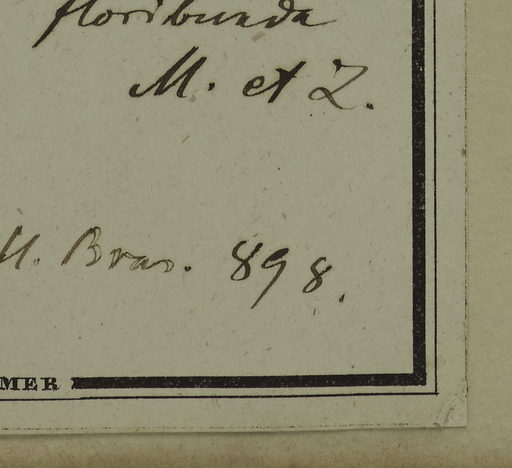 floribunda
M. et Z.
H. Bras. 898.
MER